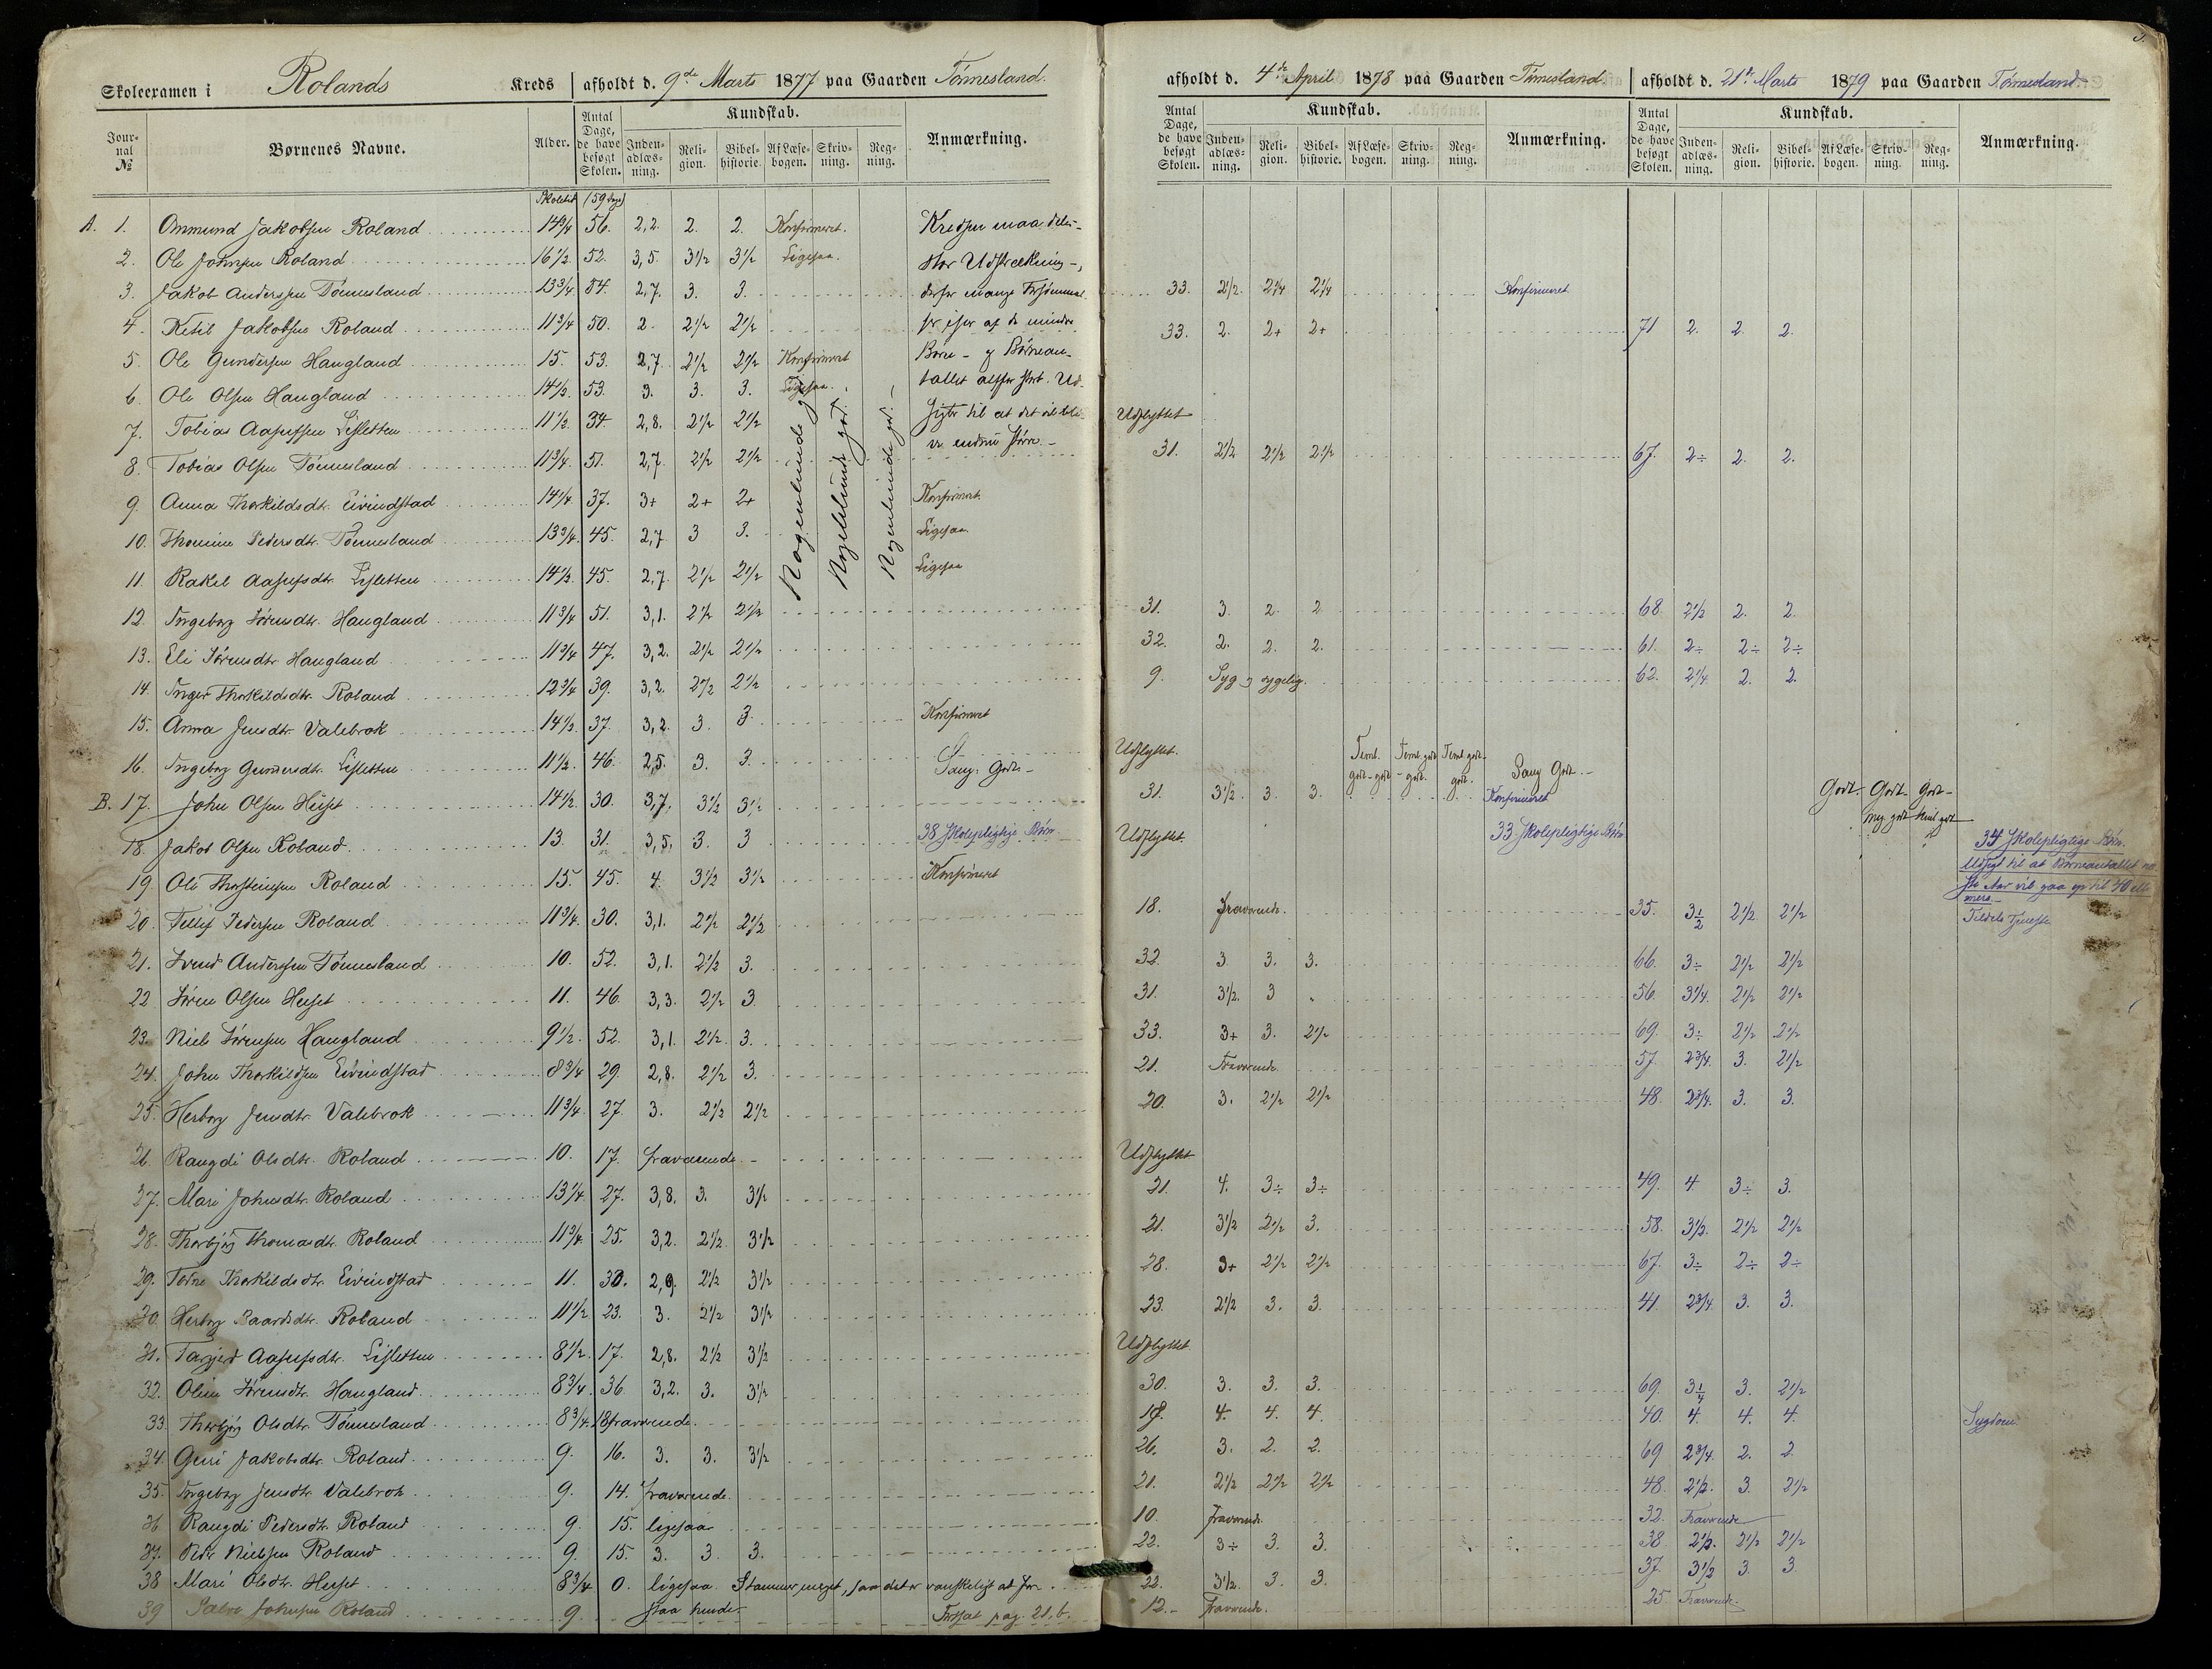 Skoleexamen i Rolands Kreds afholdt d. 9de Marts 1877 paa Gaarden Tönnesland.
afholdt d. 4de April 1878 paa Gaarden Tönnesland.
afholdt d. 21de Marts 1879 paa Gaarden Tönnesland.
Journal № Børnenes Navne. Alder. Antal Dage, de have besøgt Skolen. Kundskab. Indenadlæsning. Religion. Bibelhistorie. Af Læsebogen. Skrivning. Regning. Anmærkning.
Antal Dage, de have besøgt Skolen. Kundskab. Indenadlæsning. Religion. Bibelhistorie. Af Læsebogen. Skrivning. Regning. Anmærkning.
Antal Dage, de have besøgt Skolen. Kundskab. Indenadlæsning. Religion. Bibelhistorie. Af Læsebogen. Skrivning. Regning. Anmærkning.
A. 1. Ommund Jakobsen Roland 14 3/4 56. 2,2. 2. 2. Konfirmeret. Kredsen maa deles-
2. Ole Johnsen Roland 16 1/2 52. 3,5. 3 1/2 3 1/2 Ligesaa. stor Udstrækning -,
3. Jakob Anderssen Tönnesland 13 3/4 54. 2,7. 3. 3. derfor mange Forsömmel- 33. 2 1/2. 2 1/4 2 1/4 Konfirmeret
4. Ketil Jakobsen Roland 11 3/4 50. 2. 2 1/2 2 1/2 ser især af de mindre 33. 2. 2+ 2+ 71 2. 2. 2.
5. Ole Gundersen Haugland 15. 53. 2,7. 2 1/2 2 1/2 Konfirmeret Börn - og Börnean-
6. Ole Olsen Haugland 14 1/2. 53. 3. 3. 3. Ligesaa. tallet altfor stort. Ud-
7. Tobias Aasufsen Lisletten 11 1/2. 34. 2,8. 2 1/2 2 1/2 sigter til at det vil bli- Udflyttet
8. Tobias Olsen Tönnesland 11 3/4. 51. 2,7 2 1/2 2 1/2 ve endnu större. - 31. 2 1/2 2 1/2 2 1/2 67. 2÷ 2. 2.
9. Anna Thorkildsdtr. Eivindstad 14 1/4 37. 3+ 2+ 2+ Konfirmeret.
10. Thomine Pedersdtr. Tönnesland 13 3/4. 45. 2,7 3 3. Ligesaa.
11. Rakel Aasufsdtr. Lisletten 14 1/2. 45. 2,7. 2 1/2 2 1/2 Ligesaa
Nogenlunde
Nogenlunde godt.
Nogenlunde godt. -
12. Ingeborg Sörensdtr. Haugland 11 3/4 51. 3,1. 2 1/2 2 1/2 31. 3. 2. 2 68. 2 1/2 2. 2.
13. Eli Sörensdtr. Haugland 11 3/4 47. 3,2. 2 1/2 2 1/2 32. 2. 2. 2. 61. 2÷ 2÷ 2÷
14. Inger Thorkildsdtr. Roland 12 3/4 39. 3,2. 2 1/2 2 1/2 9. Syg og sygelig. 62. 2 1/4. 2. 2.
15. Anna Jensdtr. Valebrok 14 1/2 37. 3,2. 3. 3. Konfirmeret
16. Ingeborg Gunnersdtr. Lisletten 11 1/2. 46. 2,5. 3. 3. Sang: Godt - Udflyttet. Teml. godt-godt Teml. godt - godt. Teml. godt. godt. Sang Godt. -
B. 17. John Olsen Huset 14 1/2. 30. 3,7. 3 1/2 3 1/2 31. 3 1/2. 3. 3. Konfirmeret Godt. Godt - meg. godt Godt - teml. godt
18. Jakob Olsen Roland 13. 31. 3,5. 3. 3 38 Skolepligtige Börn Udflyttet. 33 Skolepligtige Börn 34 Skolepligtige Börn.
Udsigt til at Börneantallet næ-
ste Aar vil gaa op til 40 eller
mere.
19. Ole Thorsteinsen Roland 15. 45. 4. 3 1/2 3 1/2 Konfirmeret
20. Tellef Pedersen Roland 11 3/4. 30. 3,1. 2 1/2 2 1/2 18. fraværende. 35. 3 1/2 2 1/2 2 1/2 Tildels Tjeneste
21. Svend Anderssen Tönnesland 10. 52. 3,1. 2 1/2 3. 32. 3 3. 3. 66. 3÷ 2 1/2 2 1/2
22. Sören Olsen Huset 11. 46. 3,3. 2 1/2 3. 31. 3 1/2. 3 56. 3 1/4. 2 1/2 2 1/2
23. Niels Sörensen Haugland 9 1/2. 52. 3,1. 2 1/2. 3. 33. 3+ 3. 2 1/2 69. 3÷ 2 1/2 2 1/2
24. John Thorkildsen Eivindstad 8 3/4 29. 2,8. 2 1/2 3. 21. Fraværende. 57. 2 3/4. 3. 2 1/2
25. Herborg Jensdtr. Valebrok 11 3/4. 27. 3. 2 1/2 2 1/2 20. 3. 2 1/2 2 1/2 48. 2 3/4. 3. 3.
26. Raugdi Olsdtr. Roland 10. 17. fraværende. - Udflyttet
27. Mari Johnsdtr. Roland 13 1/4. 27. 3,8. 3. 3 1/2 21. 4. 3÷ 3÷ 49. 4 3÷ 3.
28. Thorbjørg Thomasdtr. Roland 11 3/4. 25. 3,2. 2 1/2. 3 1/2 21. 3 1/2 2 1/2 3. 58. 3 1/2. 2 1/2 2 1/2
29. Torne Thorkildsdtr. Eivindstad 11. 30. 2,9. 2 1/2 3 1/2 28. 3+ 2 1/2 2 1/2 67. 3÷ 2÷ 2÷
30. Herborg Baardsdtr. Roland 11 1/2 23. 3. 2 1/2 3 1/2 23. 2 1/2 3. 3. 41. 2 3/4. 3. 3.
31. Targjerd Aasufsdtr. Lisletten 8 1/2. 17. 2,8. 2 1/2 3 1/2 Udflyttet
32. Oline Sörensdtr. Haugland 8 3/4. 36. 3,2. 3. 3 1/2 30. 3. 3. 3. 69. 3 1/4 3. 2 1/2
33. Thorbjørg Olsdtr. Tönnesland 8 3/4. 18 fraværende. 4. 4. 4. 40. 4. 4. 4. Sygdom
34. Guri Jakobsdtr. Roland 9. 16. 3. 3. 3 1/2 26. 3. 2. 2. 69 2 3/4. 2. 2
35. Ingeborg Jensdtr. Valebrok 9. 14. fraværende. 21. 2 1/2 2 1/2 2 1/2 48. 2 1/2. 3. 2 1/2
36 Raugdi Pedersdtr. Roland 9. 15. ligesaa 10. fraværende. 32. Fraværende
37. Peder Nielsen Roland 9. 15. 3. 3. 3. 22. 3÷ 3. 3. 38. 2 1/2. 2 1/2 2 1/2
38 Mari Olsdtr. Huset 8 3/4. 0. ligesaa. Stammer meget, saa det er vanskeligt at for- 22. 3 1/2. 3. 3. 37. 3 1/2 3 3
39 Salve Johnsen Roland 9. staa hende. Fortsat pag. 21, b. 12. - Fraværende. 25. Fraværende.